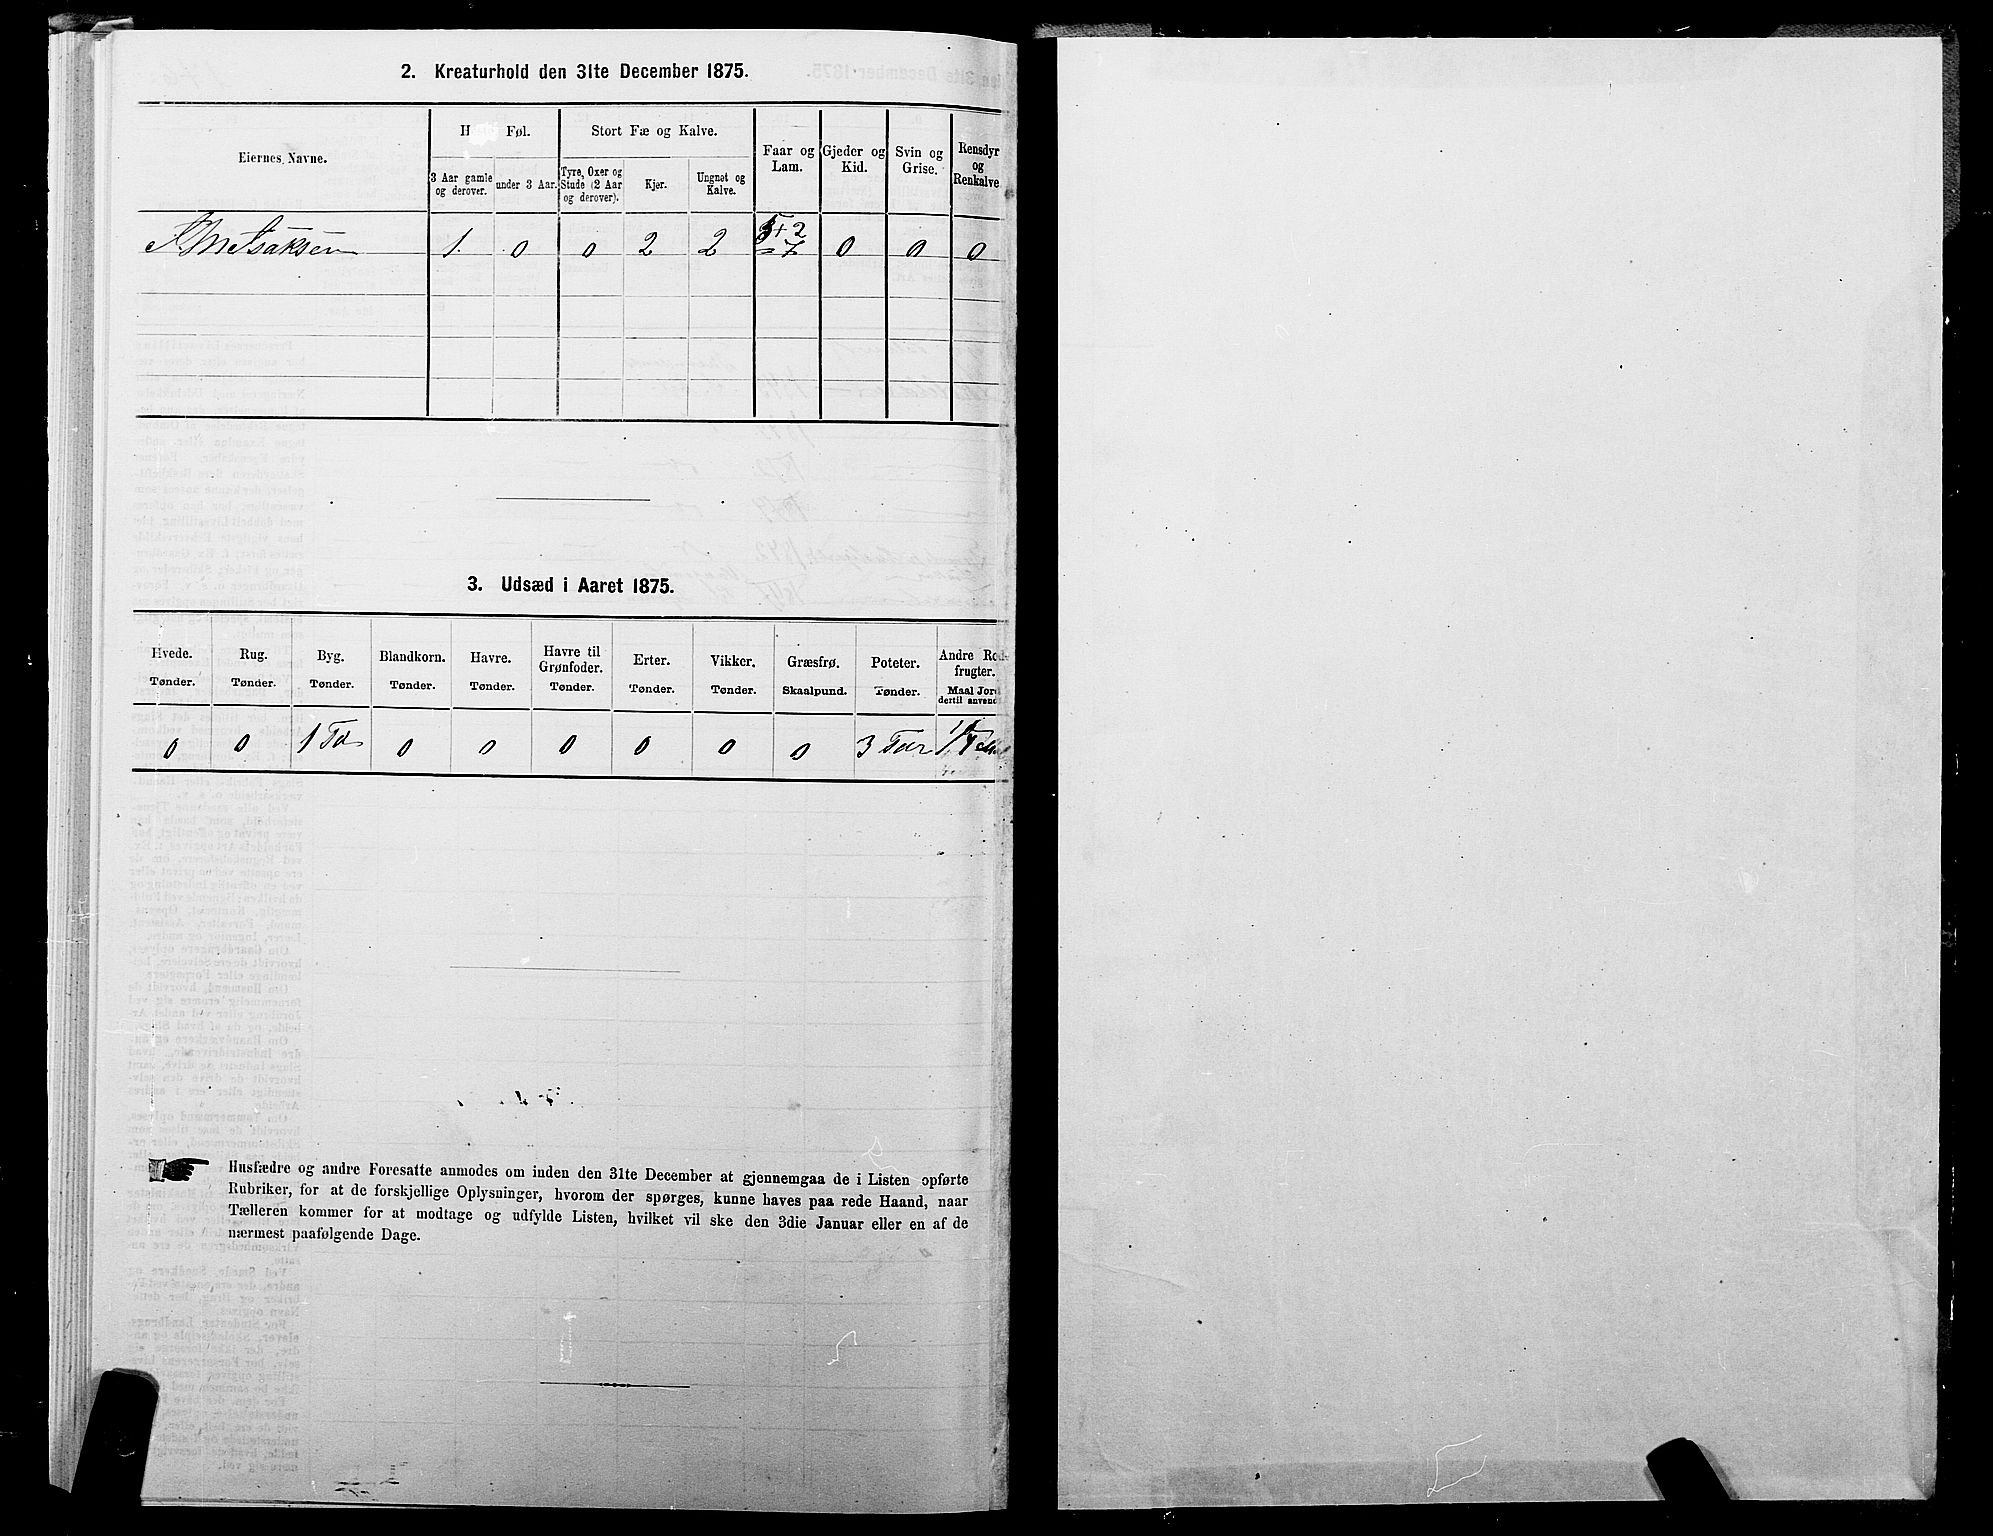 2. Kreaturhold den 31te December 1875.
Eiernes Navne.
H Føl.
3 Aar gamle og derover.
under 3 Aar.
Stort Fæ og Kalve.
Tyre, Oxer og Stude (2 Aar og derover).
Kjør.
Ungnøt og Kalve.
Faar og Lam.
Gjeder og Kid.
Svin og Grise.
Rensdyr og Renkalve
1. 0 0 2 2 5+2 =7 0 0 0
3. Udsæd i Aaret 1875.
Hvede. Tønder.
Rug. Tønder.
Byg. Tønder.
Blandkorn. Tønder.
Havre. Tønder.
Havre til Grønfoder. Tønder.
Erter. Tønder.
Vikker. Tønder.
Græsfrø. Skaalpund.
Poteter. Tønder.
Andre Rod- frugter. Maal Jord dertil anvendt
0 0 1 Td 0 0 0 0 0 0 3 Tdr
Husfædre og andre Foresatte anmodes om inden den 31te December at gjennemgaa de i Listen opførte
Rubriker, for at de forskjellige Oplysninger, hvorom der spørges, kunne haves paa rede Haand, naar
Tælleren kommer for at modtage og udfylde Listen, hvilket vil ske den 3die Januar eller en af de
nærmest paafølgende Dage.